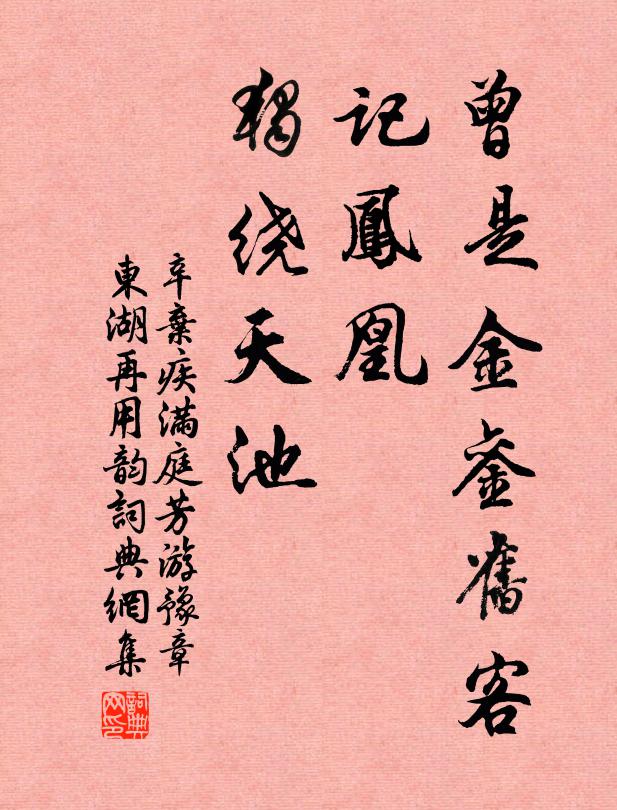 曾是金銮舊客
记鳳凰
獨绕天池
辛棄疾滿庭芳游豫章
東湖再用韵詞典網集
詞典网印